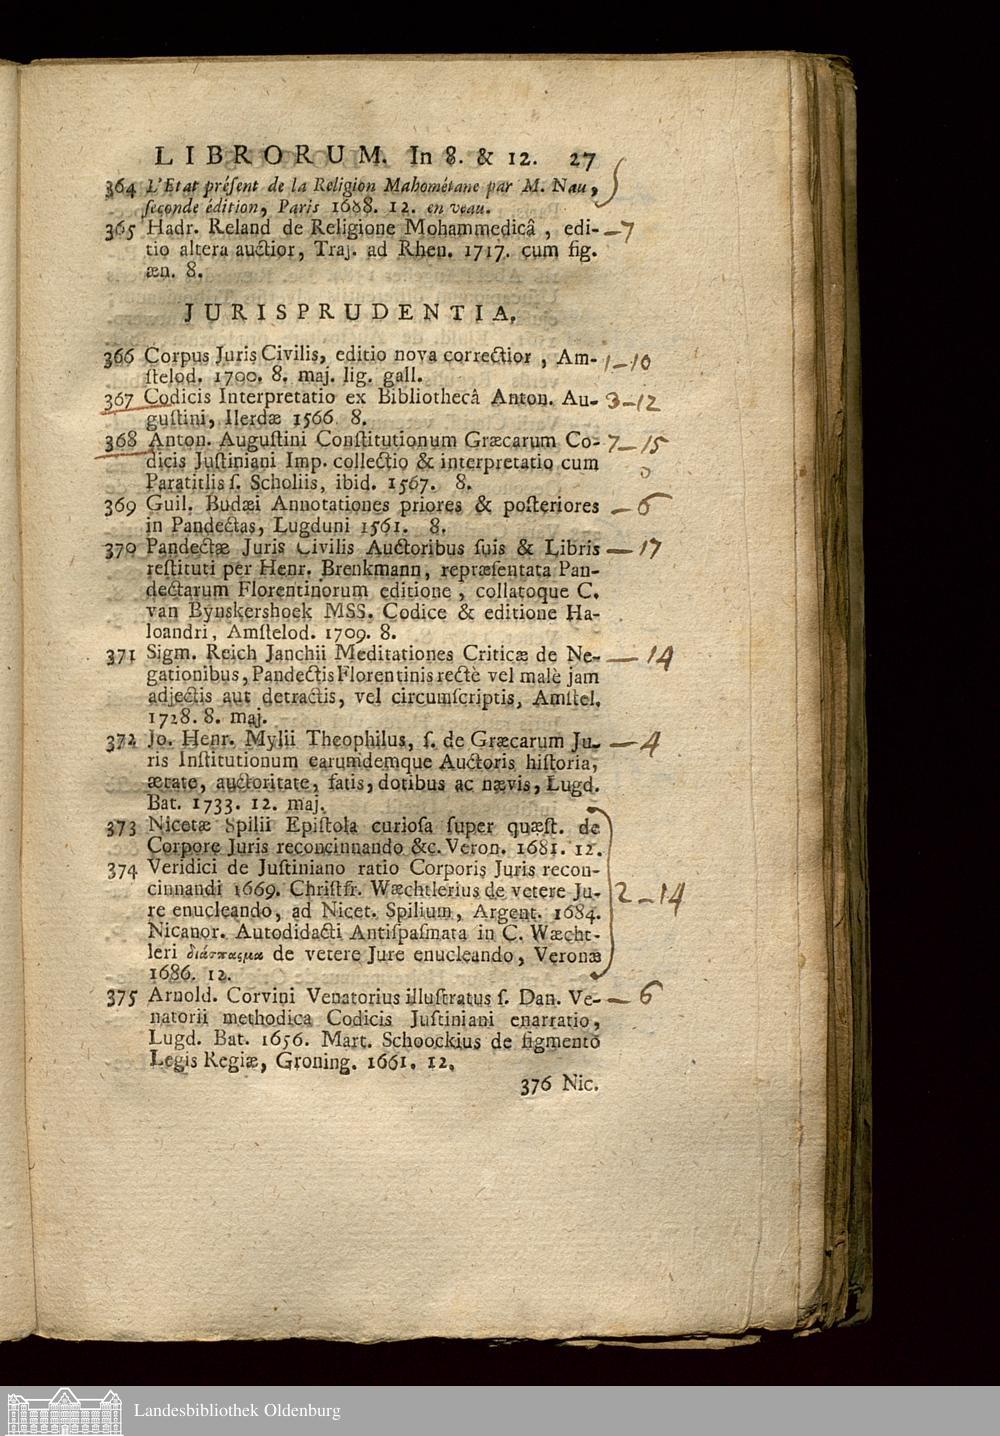 LIBRORUM. In 8. & 12. 27
364 L'Etat présent de la Religion Mahométane par M. Nau,
seconde édition, Paris 1688. 12. en veau.
365 Hadr. Reland de Religione Mohammedicâ, edi- —7
tio altera auctior, Traj. ad Rhen. 1717. cum fig.
æn. 8.
JURISPRUDENTIA.
366 Corpus Juris Civilis, editio nova correctior, Am- 1—10
ſtelod. 1700. 8. maj. lig. gall.
367 Codicis Interpretatio ex Bibliothecâ Anton. Au- 3—12
guſtini, Ilerdæ 1566. 8.
368 Anton. Auguſtini Conſtitutionum Græcarum Co- 7—15
dicis Juſtiniani Imp. collectio & interpretatio cum 0
Paratitlis ſ. Scholiis, ibid. 1567. 8.
369 Guil. Budæi Annotationes priores & poſteriores —6
in Pandectas, Lugduni 1561. 8.
370 Pandectæ Juris Civilis Auctoribus ſuis & Libris —17
reſtituti per Henr. Brenkmann, repræſentata Pan-
dectarum Florentinorum editione, collatoque C.
van Bynskershoek MSS. Codice & editione Ha-
loandri, Amſtelod. 1709. 8.
371 Sigm. Reich Janchii Meditationes Criticæ de Ne- —14
gationibus, Pandectis Florentinis rectè vel malè jam
adjectis aut detractis, vel circumſcriptis, Amſtel.
1728. 8. maj.
372 Jo. Henr. Mylii Theophilus, ſ. de Græcarum Ju- —4
ris Inſtitutionum earumdemque Auctoris hiſtoria,
ætate, auctoritate, fatis, dotibus ac nævis, Lugd.
Bat. 1733. 12. maj.
373 Nicetæ Spilii Epiſtola curioſa ſuper quæſt. de
Corpore Juris reconcinnando &c. Veron. 1681. 12.
374 Veridici de Juſtiniano ratio Corporis Juris recon-
cinnandi 1669. Chriſtfr. Wæchtlerius de vetere Ju- 2—14
re enucleando, ad Nicet. Spilium, Argent. 1684.
Nicanor. Autodidacti Antiſpaſmata in C. Wæcht-
leri διάσπασμα de vetere Jure enucleando, Veronæ
1686. 12.
375 Arnold. Corvini Venatorius illuſtratus ſ. Dan. Ve- —6
natorii methodica Codicis Juſtiniani enarratio,
Lugd. Bat. 1656. Mart. Schoockius de figmento
Legis Regiæ, Groning. 1661. 12.
376 Nic.
Landesbibliothek Oldenburg